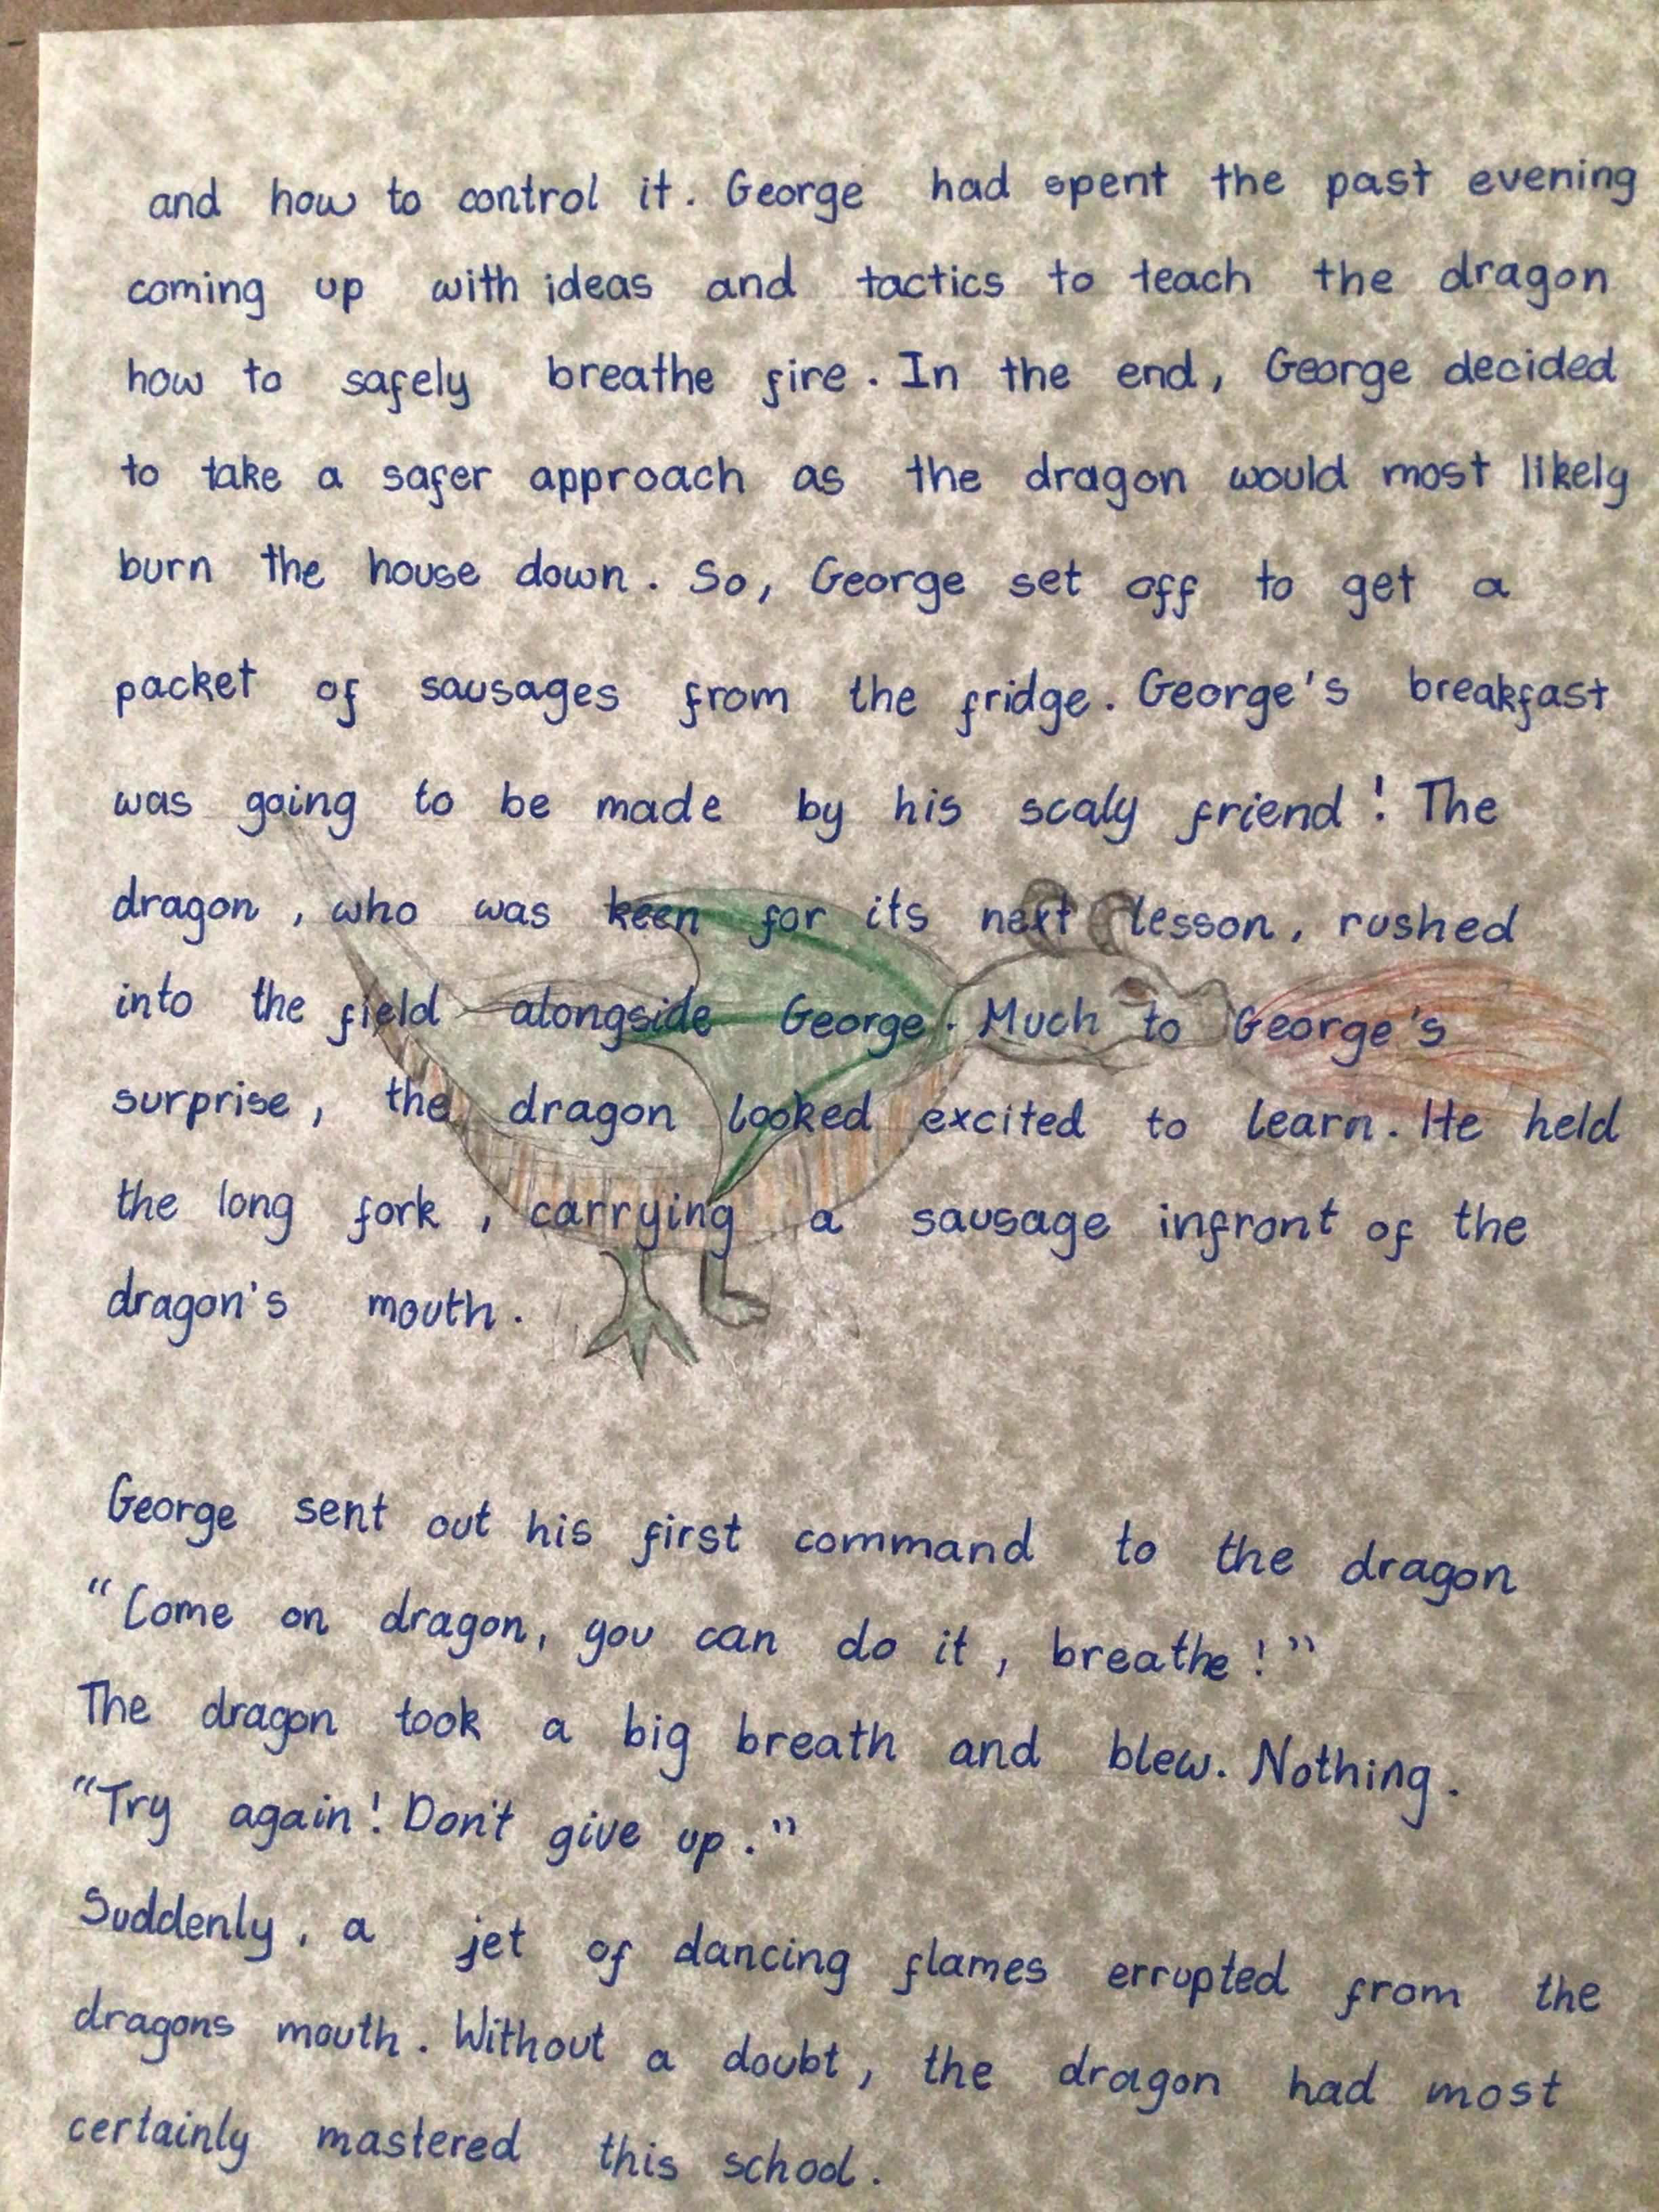 and how to control it. George had spent the past evening
coming up with ideas and tactics to teach the dragon
how to safely breathe fire. In the end, George decided
to take a safer approach as the dragon would most likely
burn the house down. So, George set off to get a
packet of sausages from the fridge. George's breakfast
was going to be made by his scaly friend! The
dragon, who was keen for its next lesson, rushed
into the field alongside George. Much to George's
surprise, the dragon looked excited to learn. He held
the long fork, carrying a sausage infront of the
dragon's mouth.
George sent out his first command to the dragon
"Come on dragon, you can do it, breathe!"
The dragon took a big breath and blew. Nothing.
"Try again! Don't give up."
Suddenly, a jet of dancing flames errupted from the
dragons mouth. Without a doubt, the dragon had most
certainly mastered this school.